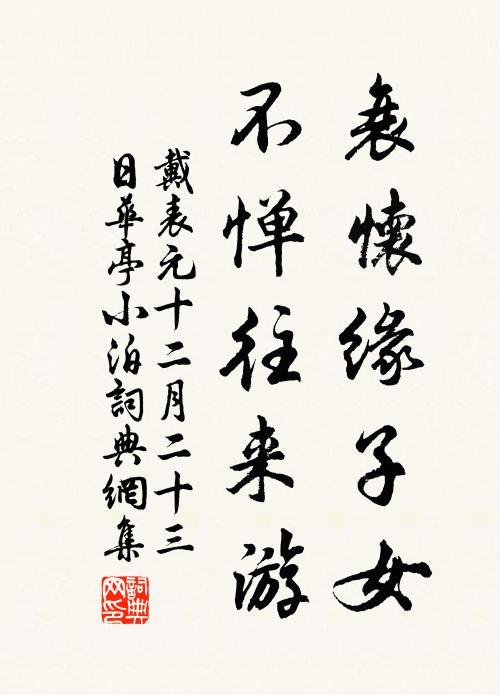 衰懷緣子女
不惮往来游
戴表元十二月二十三
日華亭小泊詞典網集
詞典網印